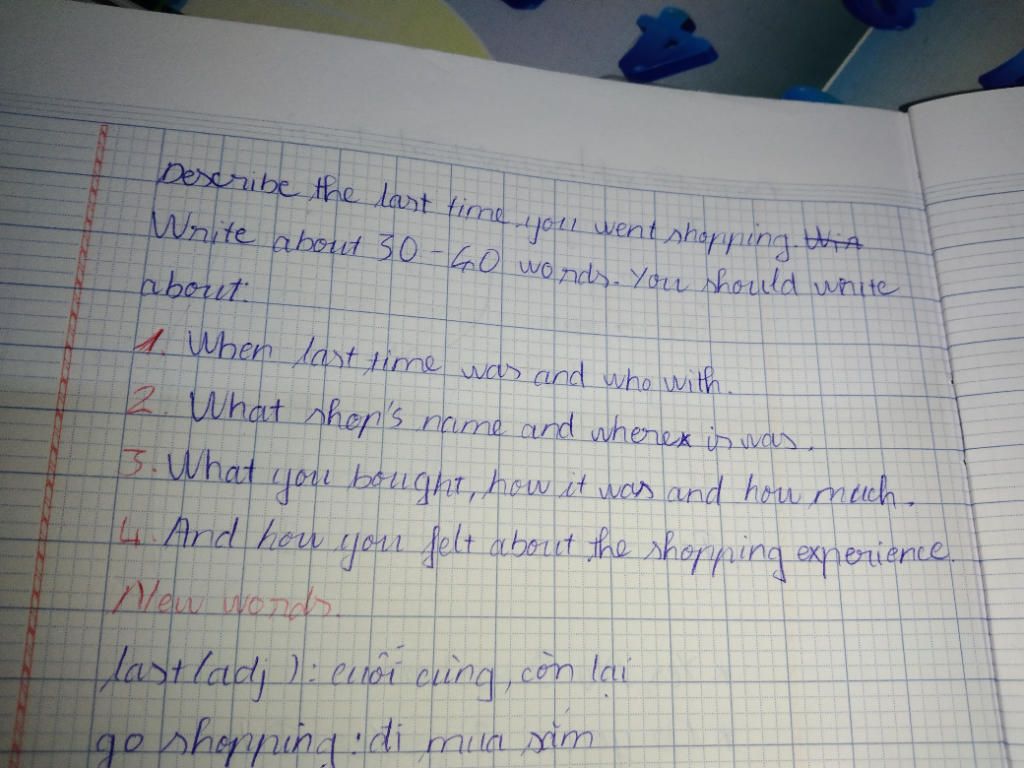 Describe the last time you went shopping.
Write about 30-40 words. You should write
about:
1. When last time was and who with.
2. What shop's name and where is was.
3. What you bought, how it was and how much.
4. And how you felt about the shopping experience.
New words.
last (adj): cuối cùng, còn lại
go shopping: đi mua sắm